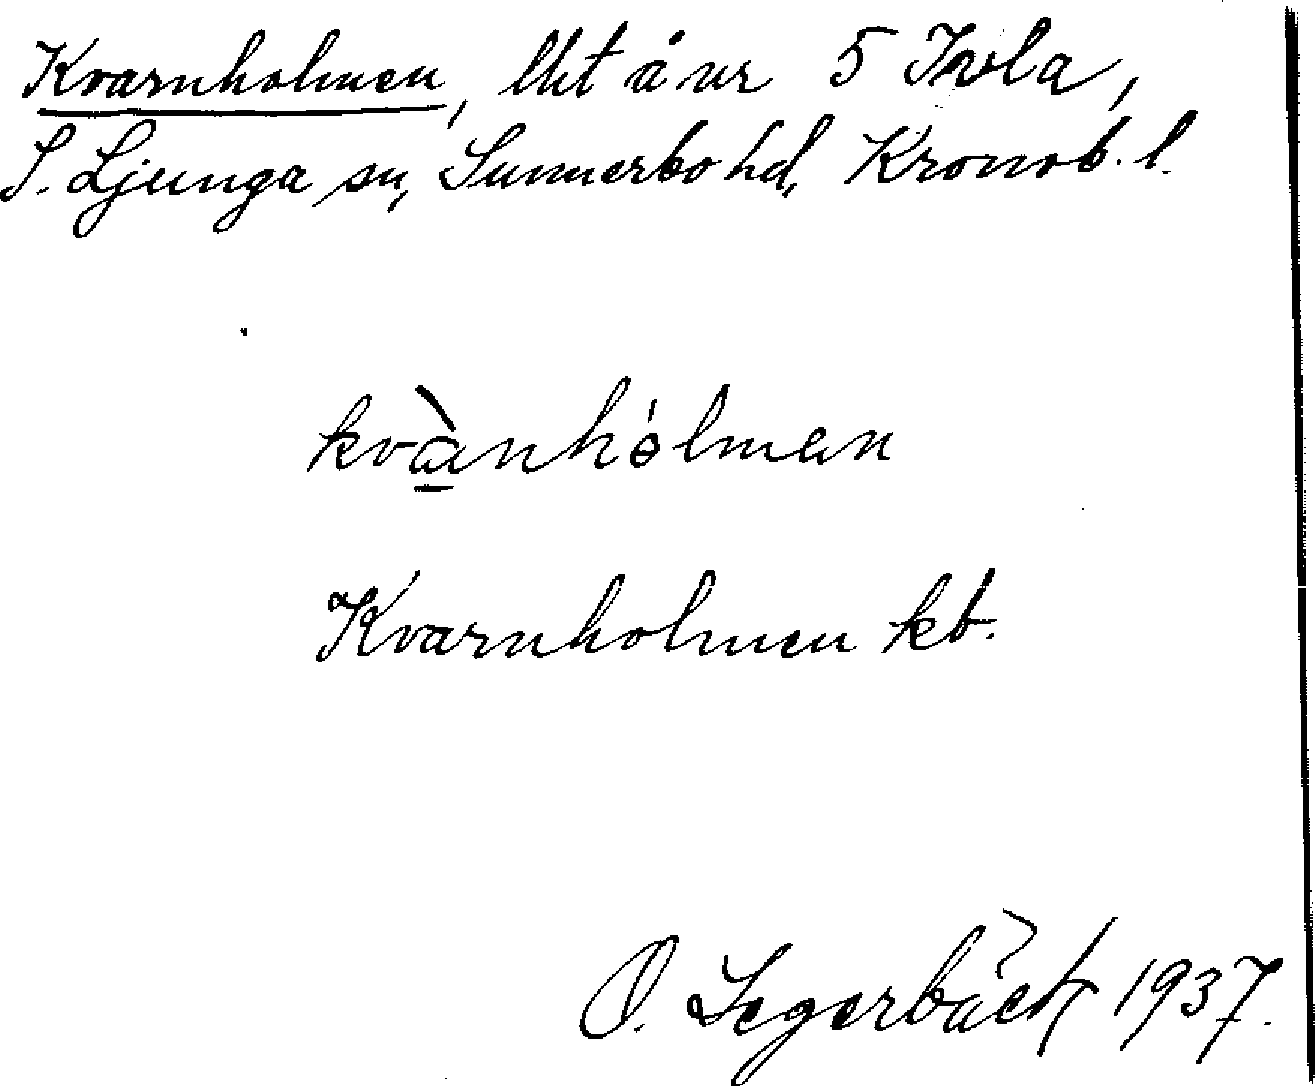 Kvarnholmen, lht å nr 5 Ivla,
S. Ljunga sn, Sunnerbo hd, Kronob. l.
kvànhólmen
Kvarnholmen kb.
O. Segerbäck 1937.